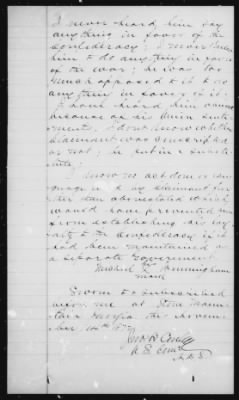 I never heard him say
anything in favor of the
Confederacy; I never knew
him to do anything in favor
of the war; he was too
much opposed to it to do
anything in favor of it.
I have heard him
because of his Union senti-
ment. I dont know whether
claimant was conscripted
or not; he put in a substi-
tute;
I know no act done or lan-
guage used by claimant fur-
ther than above stated which
would have prevented him
from establishing his loy-
alty to the Confederacy if it
had been maintained as
a separate government.
his
Cunningham
mark
Sworn to & subscribed
before me at Stone Moun-
tain Georgia this Novem-
ber 14th 187